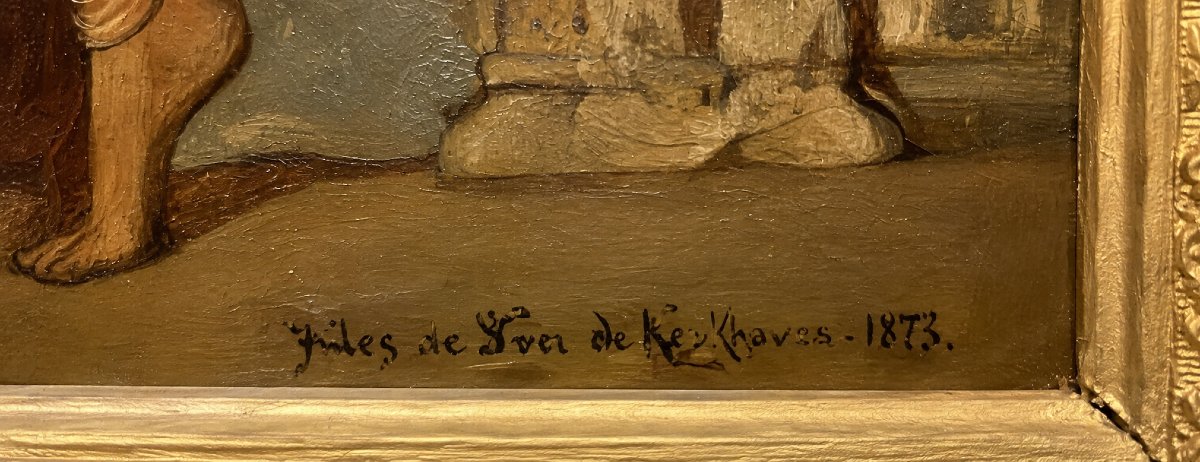 Jules de Sver de Kerkhaves - 1873.